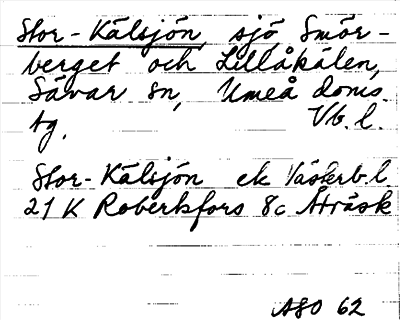 Stor-Kälsjön, sjö, Smör-
berget och Lillåkälen,
Sävar sn, Umeå doms.
tg. Vb. l.
Stor-Kälsjön ek Västerb l
21 K Robertsfors 8c Åträsk
ASO 62